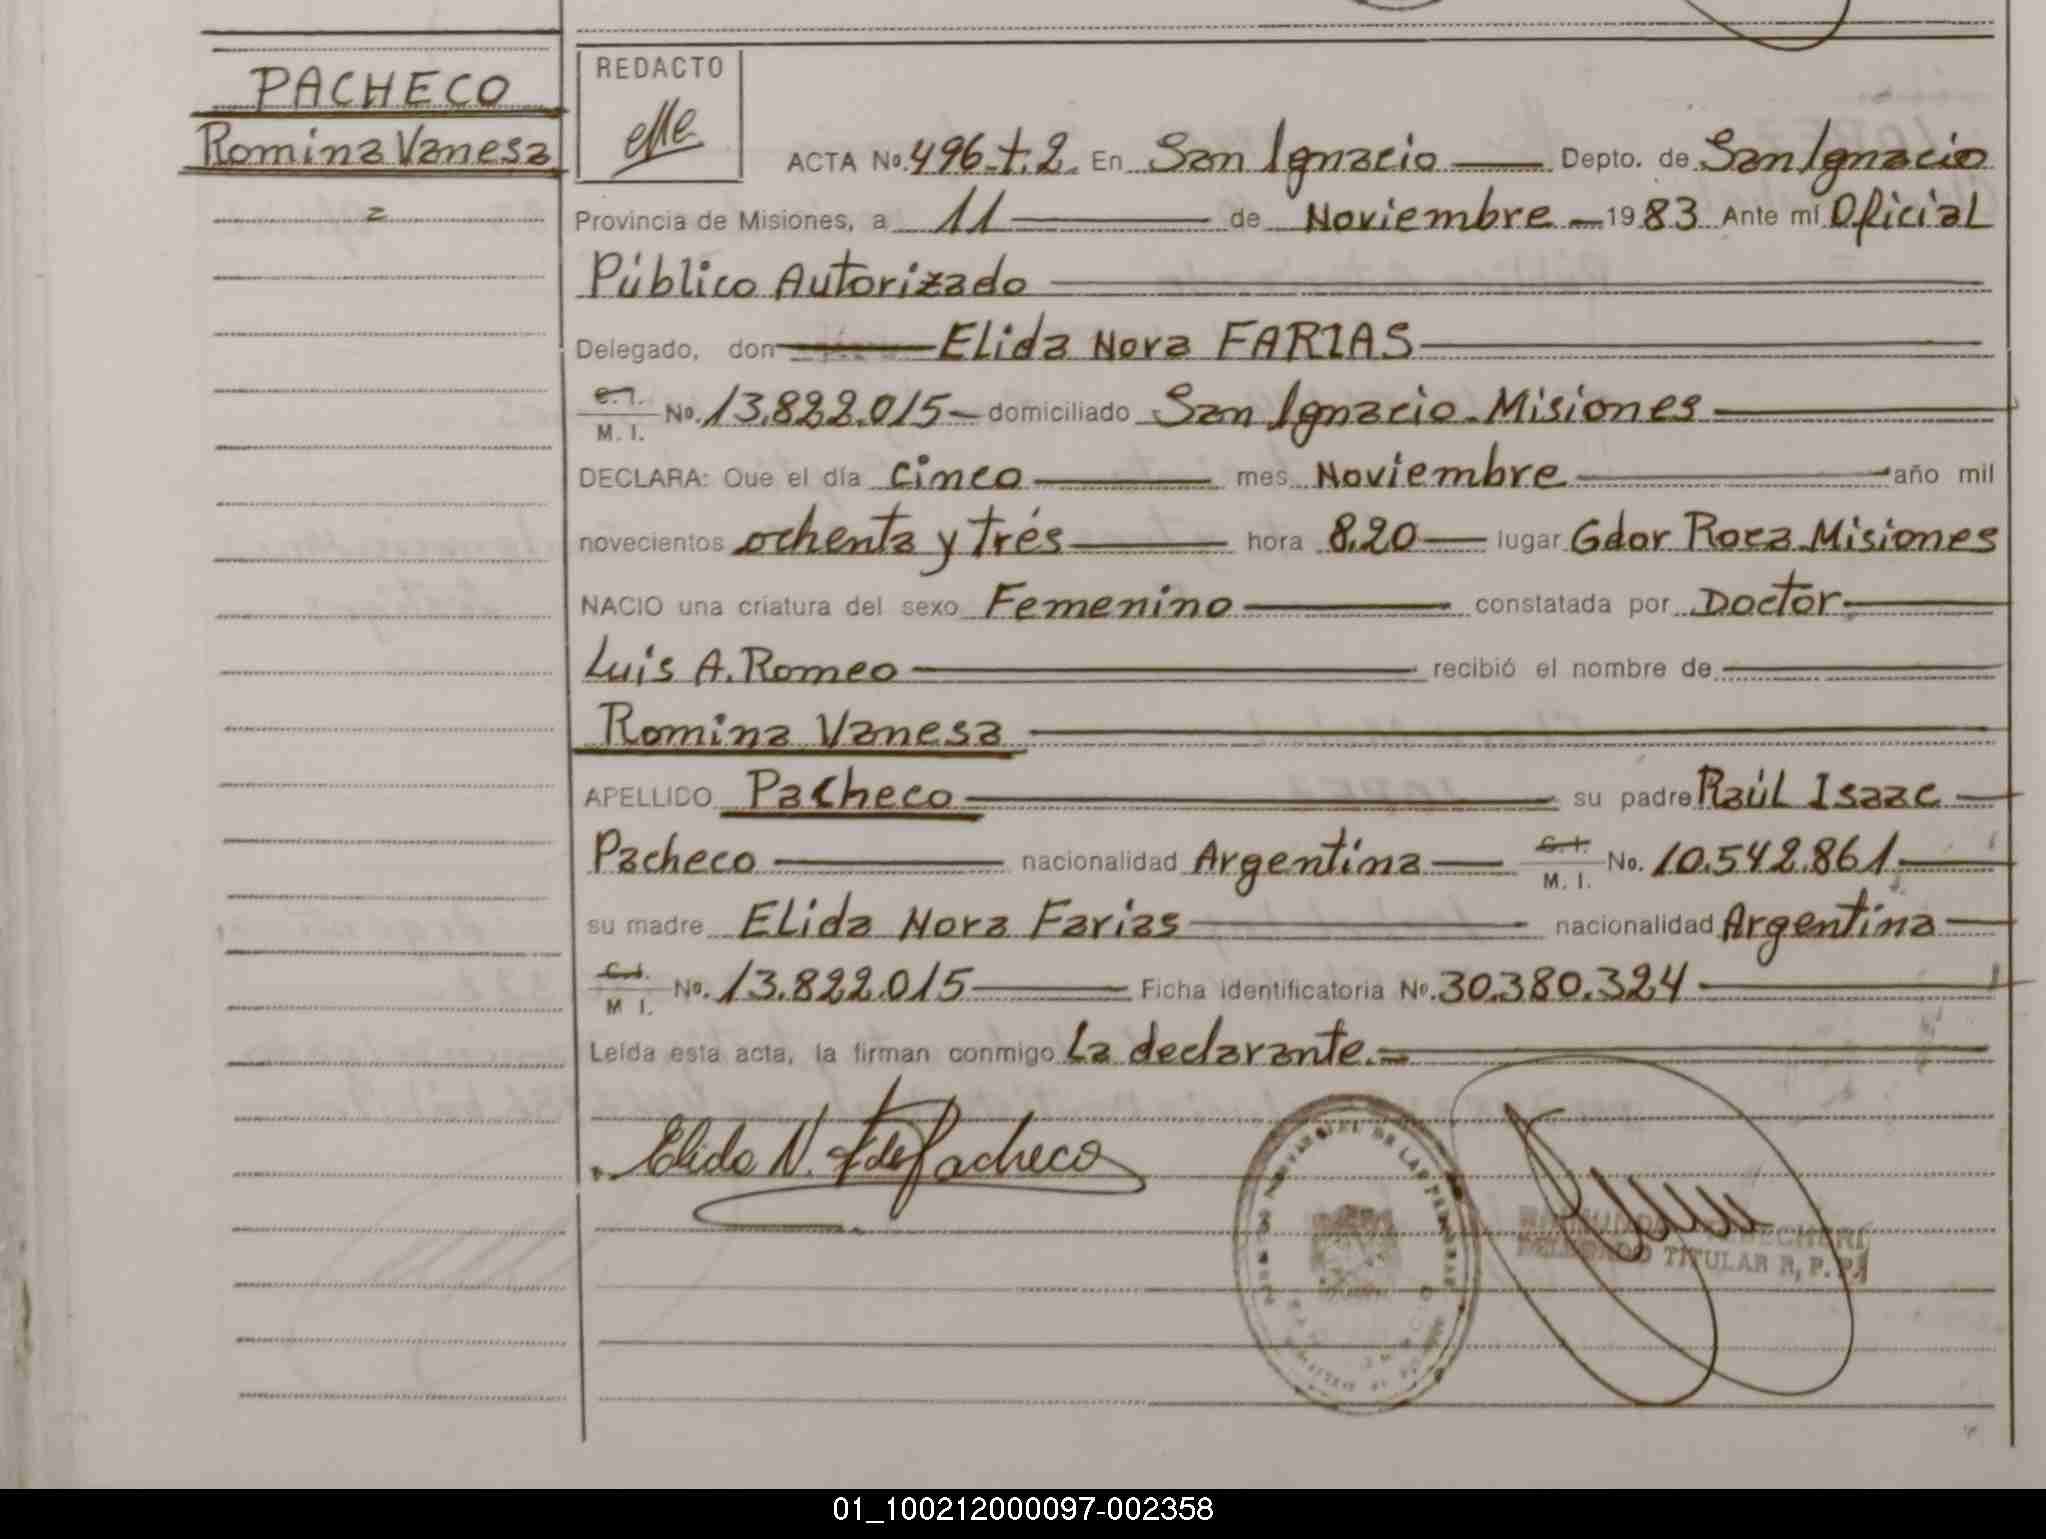 PACHECO
Romina Vanesa
REDACTO
ACTA No. 496.t.2. En San Ignacio Depto. de San Ignacio
Provincia de Misiones, a 11 de Noviembre 1983 Ante mí Oficial
Público Autorizado
Delegado, don Elida Nora FARIAS
C.I. M. I. No. 13.822.015 domiciliado San Ignacio. Misiones
DECLARA: Que el día cinco mes Noviembre año mil
novecientos ochenta y trés hora 8,20 lugar Gdor Roca Misiones
NACIO una criatura del sexo Femenino constatada por Doctor
Luis A. Romeo recibió el nombre de
Romina Vanesa
APELLIDO Pacheco su padre Raúl Isaac
Pacheco nacionalidad Argentina C.I. M. I. No. 10.542.861
su madre Elida Nora Farias nacionalidad Argentina
C.I. M I. No. 13.822.015 Ficha identificatoria No. 30.380.324
Leída esta acta, la firman conmigo La declarante.
Elida N. F de Pacheco
DE LAS
TITULAR R. P. P.
01_100212000097-002358